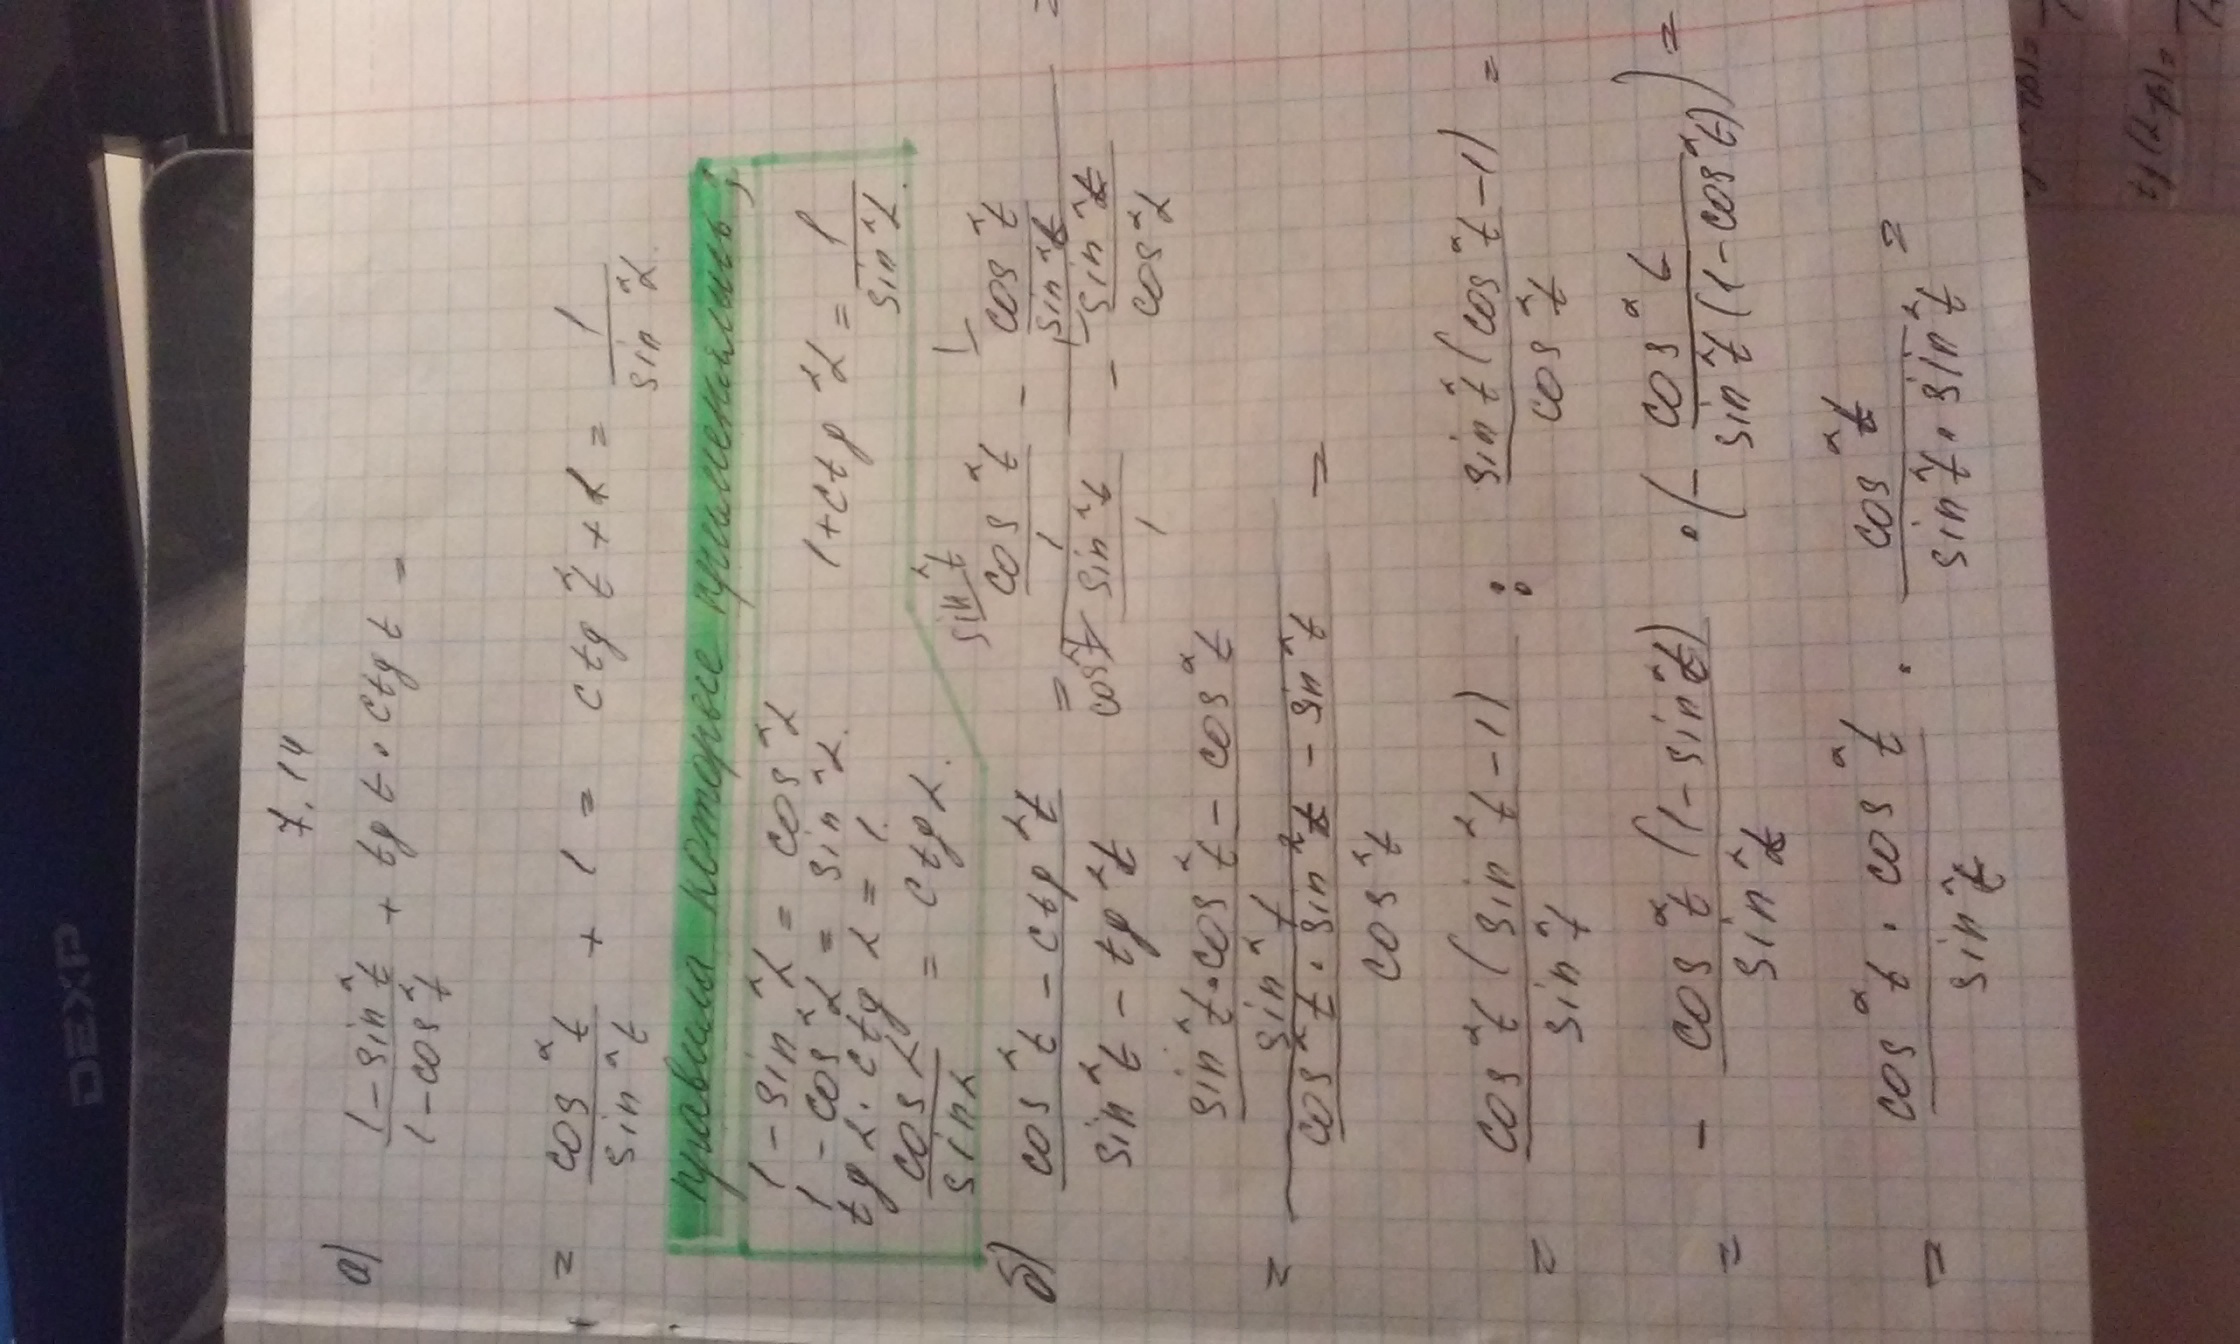 7.14
а) (1 - sin²t)/(1 - cos²t) + tg t · ctg t =
= cos²t/sin²t + 1 = ctg²t + 1 = 1/sin²α.
правила которые применялись;
1 - sin²α = cos²α
1 - cos²α = sin²α. 1 + ctg²α = 1/sin²α.
tg α · ctg α = 1.
cos α/sin α = ctg α.
б) (cos²t - ctg²t)/(sin²t - tg²t) = (cos²t/1 - cos²t/sin²t)/(sin²t/1 - sin²t/cos²α) =
= ((sin²t · cos²t - cos²t)/sin²t)/((cos²t · sin²t - sin²t)/cos²t) =
= cos²t(sin²t - 1)/sin²t : sin²t(cos²t - 1)/cos²t =
= - cos²t(1 - sin²t)/sin²t · (- cos²t/(sin²t(1 - cos²t))) =
= cos²t · cos²t/sin²t · cos²t/(sin²t · sin²t) =
DEXP